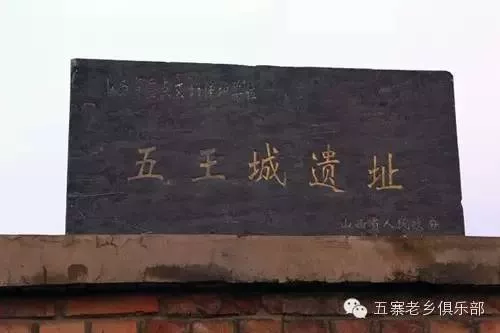 山西省重点文物保护单位
五王城遗址
山西省人民政府
五寨老乡俱乐部